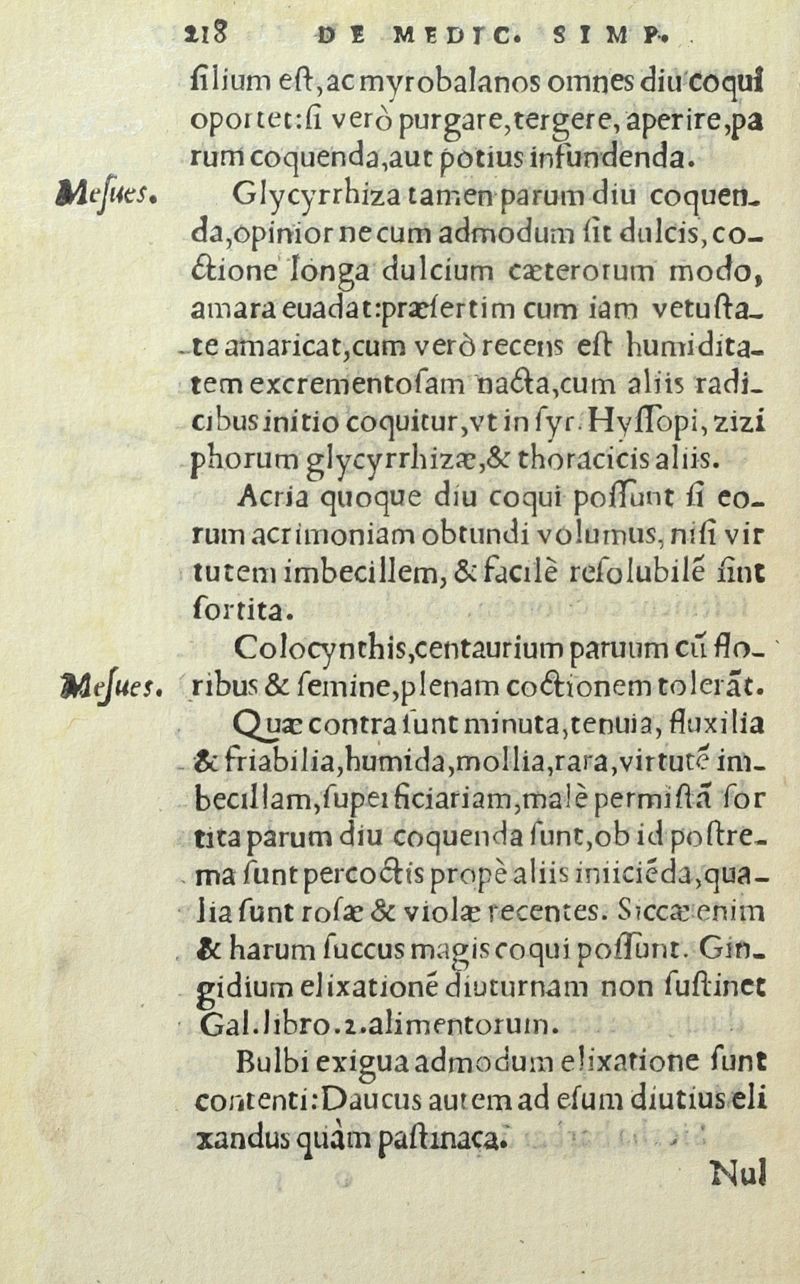 218 DE MEDIC. SIMP.
ſilium eſt,ac myrobalanos omnes diu coqui
oportet:ſi verò purgare,tergere, aperire,pa
rum coquenda,aut potius infundenda.
Meſues. Glycyrrhiza tamen parum diu coquen-
da,opinior ne cum admodum ſit dulcis, co-
ctione longa dulcium cæterorum modo,
amara euadat:præſertim cum iam vetuſta-
te amaricat,cum verò recens eſt humidita-
tem excrementoſam nacta,cum aliis radi-
cibus initio coquitur,vt in ſyr. Hyſſopi, zizi
phorum glycyrrhizæ,& thoracicis aliis.
Acria quoque diu coqui poſſunt ſi eo-
rum acrimoniam obtundi volumus, niſi vir
tutem imbecillem, & facilè reſolubilẽ ſint
ſortita.
Colocynthis,centaurium paruum cũ flo-
Meſues. ribus & ſemine,plenam coctionem tolerãt.
Quæ contra ſunt minuta,tenuia, fluxilia
& friabilia,humida,mollia,rara,virtutẽ im-
becillam,ſuperficiariam,malè permiſtã ſor
tita parum diu coquenda ſunt,ob id poſtre-
ma ſunt percoctis propè aliis iniiciẽda,qua-
lia ſunt roſæ & violæ recentes. Siccæ enim
& harum ſuccus magis coqui poſſunt. Gin-
gidium elixationẽ diuturnam non ſuſtinet
Gal.libro.2.alimentorum.
Bulbi exigua admodum elixatione ſunt
contenti:Daucus autem ad eſum diutius eli
xandus quàm paſtinaca.
Nul